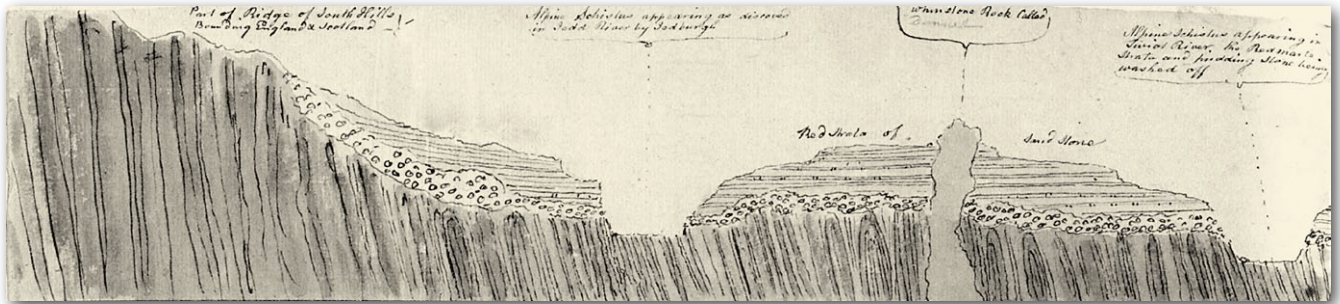 Part of Ridge of South Hills
Bounding England & Scotland
Alpine Schistus appearing as discovered
in Jedd River by Jedburgh
Whinstone Rock Called
Alpine Schistus appearing in
River, the Red marle
Strata and pudding Stone being
washed off
Red Strata of
Sand Stone